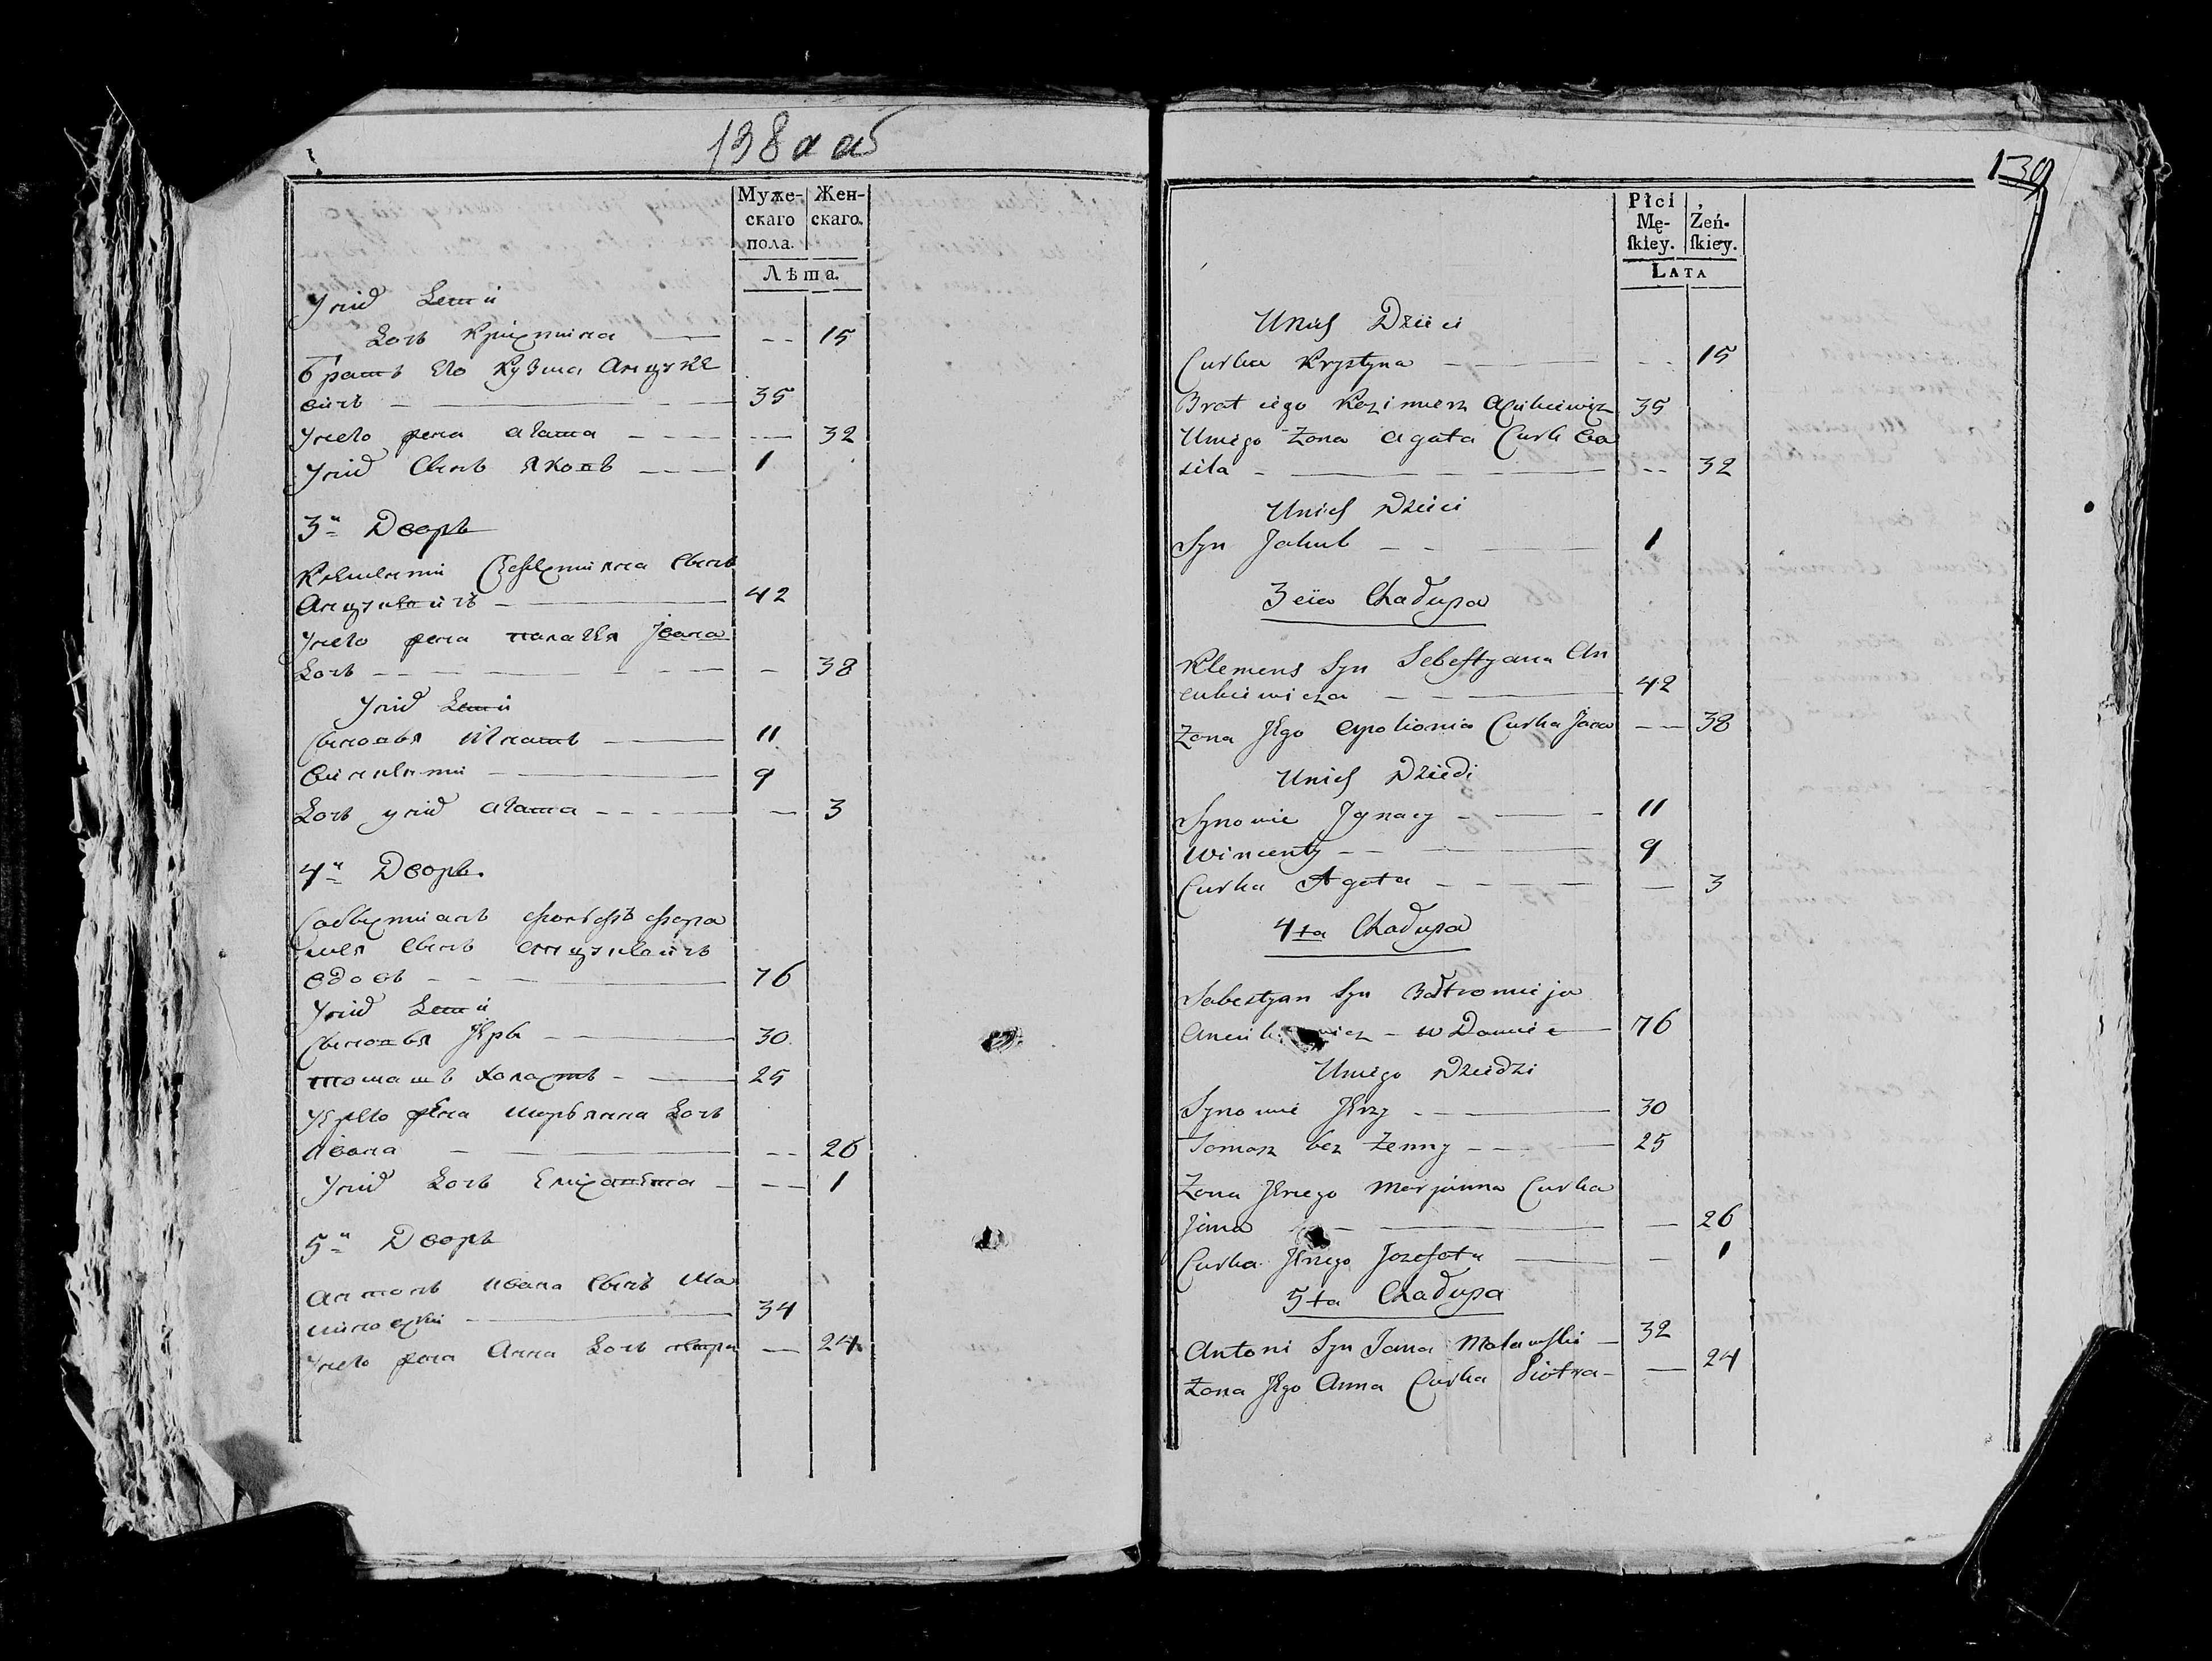 138 а об
Муже-
скаго
пола.
Жен-
скаго.
Лѣта.
Унид Дети
Дочь Крістина — -- 15
братъ его Кузма Анцуке
вичъ — 35
Унего жена агата — 32
Унид Сынъ Яковъ — 1
3й Дворъ
Клементи Сынъ
Анцукевичъ — 42
Унего жена Івана
Дочь — 38
Унид Дети
Сыновья Игнатъ — 11
Викенти — 9
Дочь унид агата — 3
4й Дворъ
Сынъ
вдовъ — 76
Унид Дети
Сыновья — 30
томашъ холастъ — 25
жена марьянна Дочь
Ивана — 26
Унид Дочь — 1
5й Дворъ
антонъ ивана Сынъ Ма
— 34
Унего жена Анна Дочь петра — 24
139
Płci
Mę-
ſkiey.
Żeń-
ſkiey.
LATA
Unich Dzieci
Curka Krystyna — 15
Brat iego 35
Uniego Żona agata Curk Ba
zila — 32
Unich Dzieci
Syn Jakub — 1
3cia Chadupa
Klemens Syn Sebeſtyana An
cukiewicza — 42
Żona Jego Apolionia Curka Jana — 38
Unich Dziedi
Synowie Jgnacy — 11
Wincenty — 9
Curka Agata — 3
4ta Chadupa
Sebestyan Syn Bałtromieja
— 76
Uniego Dziedzi
Synowie Jerzy — 30
Tomasz bez Żenny — 25
Żona Jerzego Marjanna Curka
Jana — 26
Curka Jerzego Jozefata — 1
5ta Chadupa
Antoni Syn Jana — 32
Żona Jego Anna Curka Piotra — 24